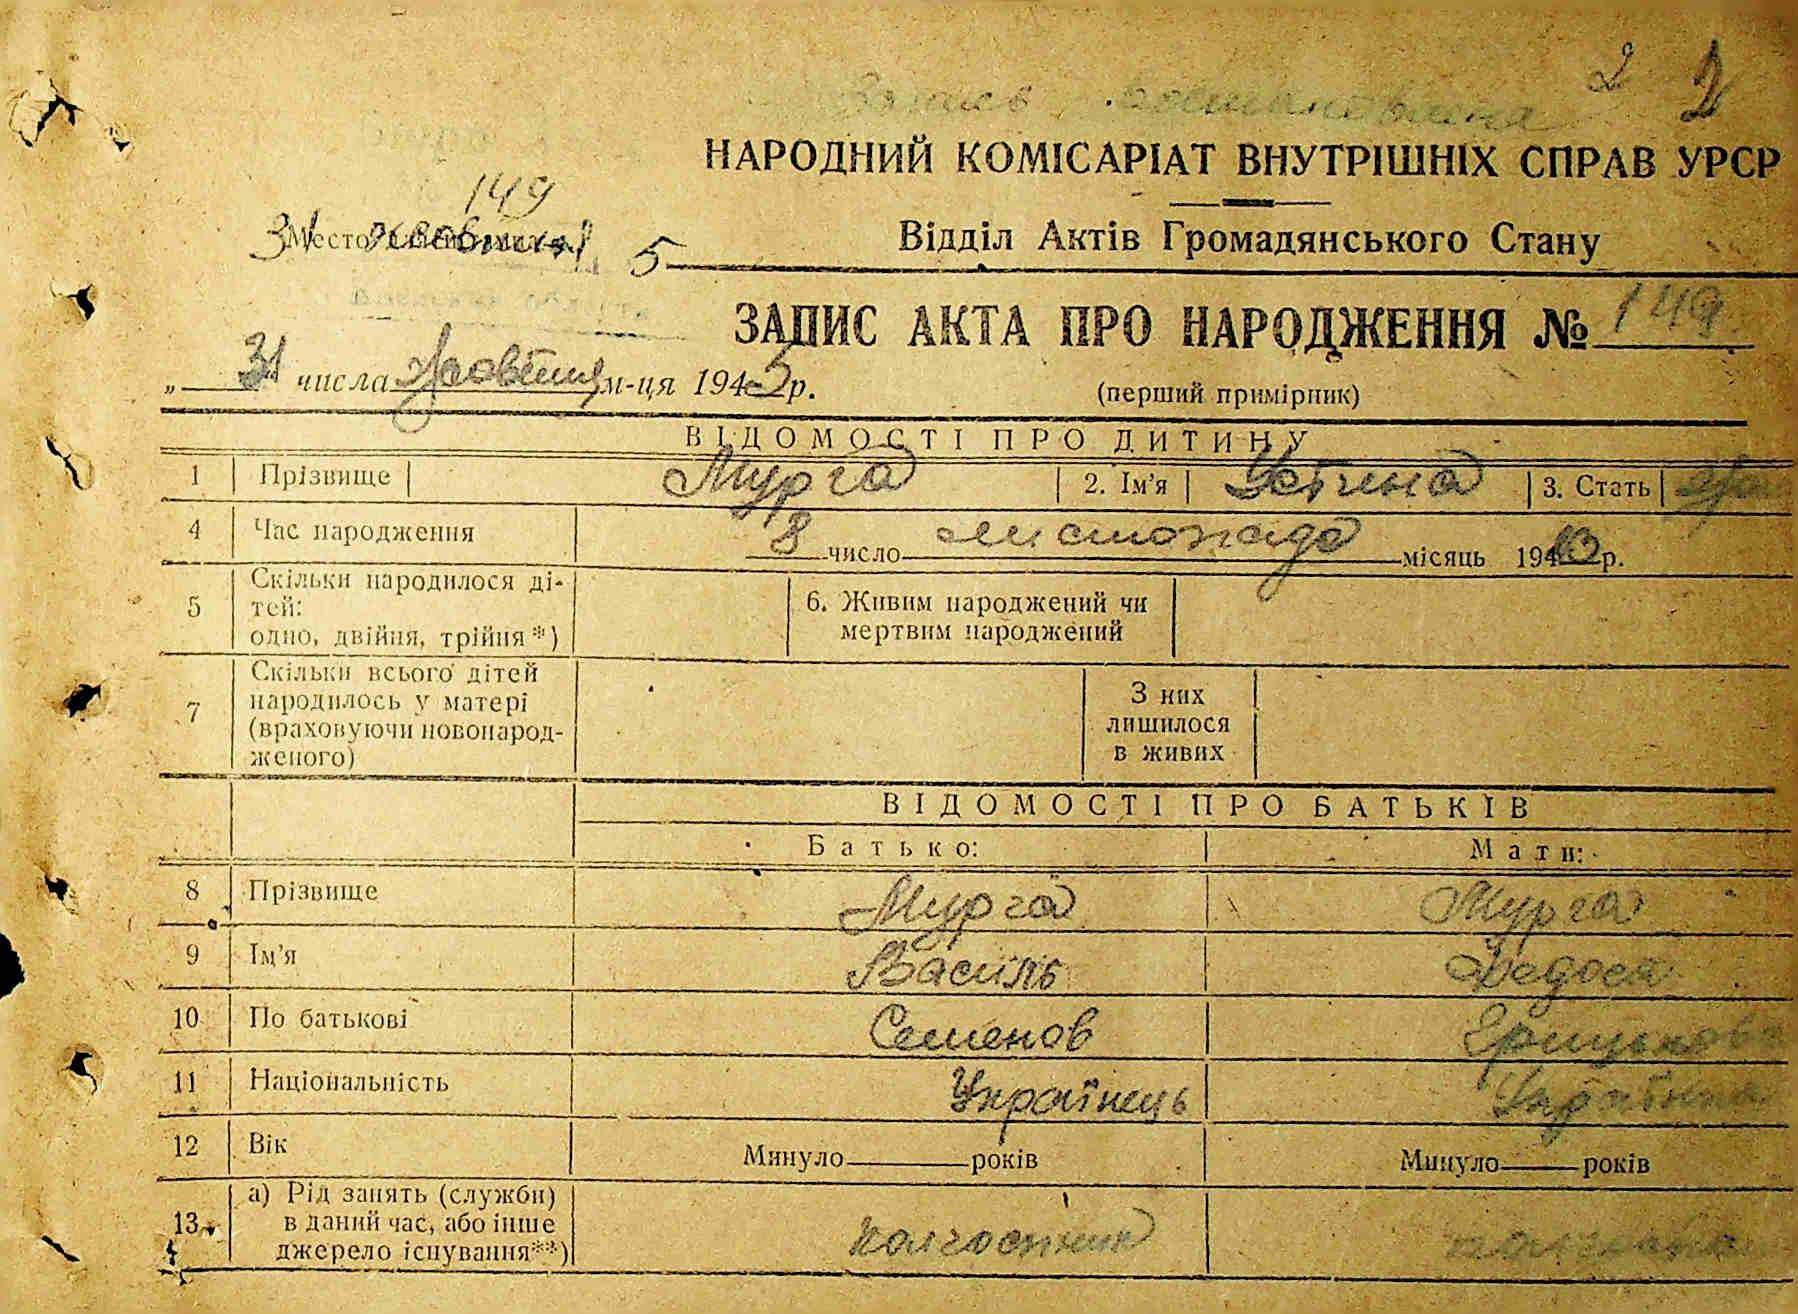 Запись восстановлена 2 2
НАРОДНИЙ КОМІСАРІАТ ВНУТРІШНІХ СПРАВ УРСР
149
31 жовтня 5
Место
Відділ Актів Громадянського Стану
ЗАПИС АКТА ПРО НАРОДЖЕННЯ № 149
„ 31 числа Жовтня м-ця 1945 р.
(перший примірник)
ВІДОМОСТІ ПРО ДИТИНУ
1 Прізвище Мурга 2. Ім'я Устина 3. Стать
4 Час народження 8 число листопада місяць 1940 р.
5 Скільки народилося ді-
тей:
одно, двійня, трійня*)
6. Живим народжений чи
мертвим народжений
7 Скільки всього дітей
народилось у матері
(враховуючи новонарод-
женого)
З них
лишилося
в живих
ВІДОМОСТІ ПРО БАТЬКІВ
Батько: Мати:
8 Прізвище Мурга Мурга
9 Ім'я Василь Федося
10 По батькові Семенов Грицьков
11 Національність Українець Українка
12 Вік Минуло років Минуло років
13 а) Рід занять (служби)
в даний час, або інше
джерело існування**)
колгоспник колгоспн